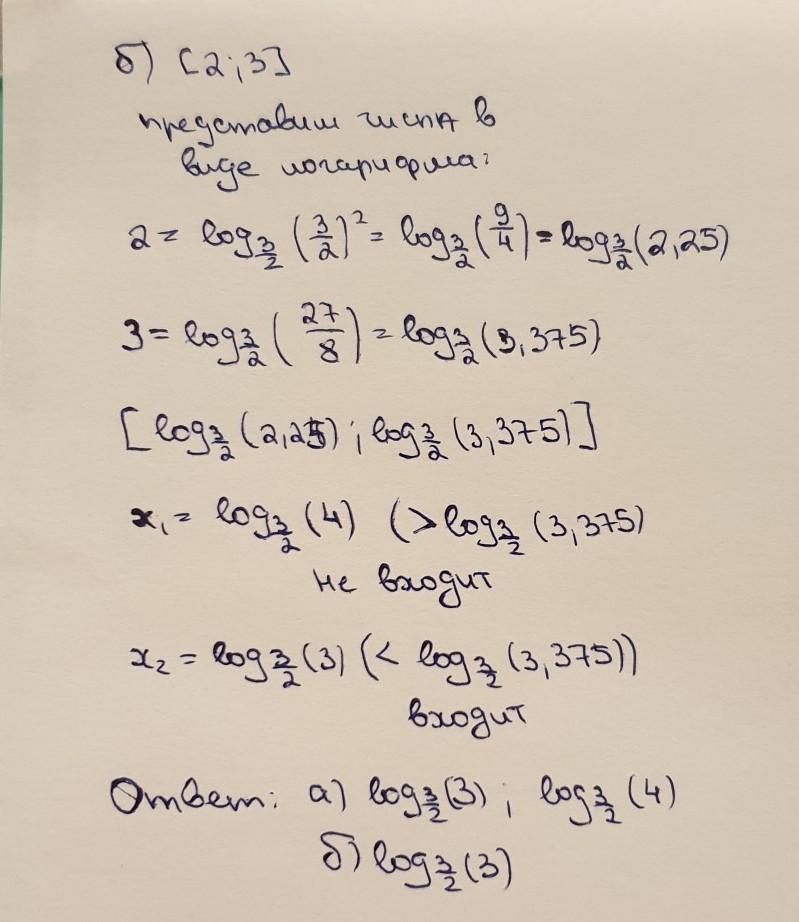 б) [2;3]
представим числа в
виде логарифма:
2 = log_{3/2} (3/2)^2 = log_{3/2} (9/4) = log_{3/2} (2,25)
3 = log_{3/2} (27/8) = log_{3/2} (3,375)
[log_{3/2} (2,25) ; log_{3/2} (3,375)]
x₁ = log_{3/2} (4) (> log_{3/2} (3,375)
не входит
x₂ = log_{3/2} (3) (< log_{3/2} (3,375))
входит
Ответ: а) log_{3/2} (3) ; log_{3/2} (4)
б) log_{3/2} (3)